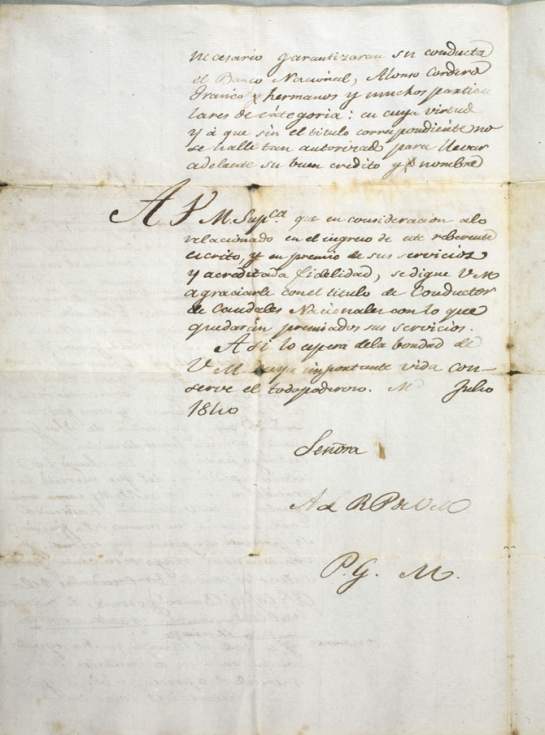 necesario garantizaran su conducta
el Banco Nacional, Alonso Cordero
Franco y hermanos y muchos particu
lares de categoria: en cuya virtud
y à que sin el titulo correspondiente no
se halle tan autorizado para llevar
adelante su buen credito y nombre
A V M Supca que en consideracion alo
relacionado en el ingreso de este reberente
escrito, y en premio de sus servicios
y acreditada fidelidad, se digne V M
agraciarle con el titulo de Conductor
de Caudales Nacionales con lo que
quedarán premiados sus servicios.
Asi lo espera dela bondad de
V M cuya importante vida con-
serve el todopoderoso. M Julio
1840
Señora
A L R P de V M
P. G. M.